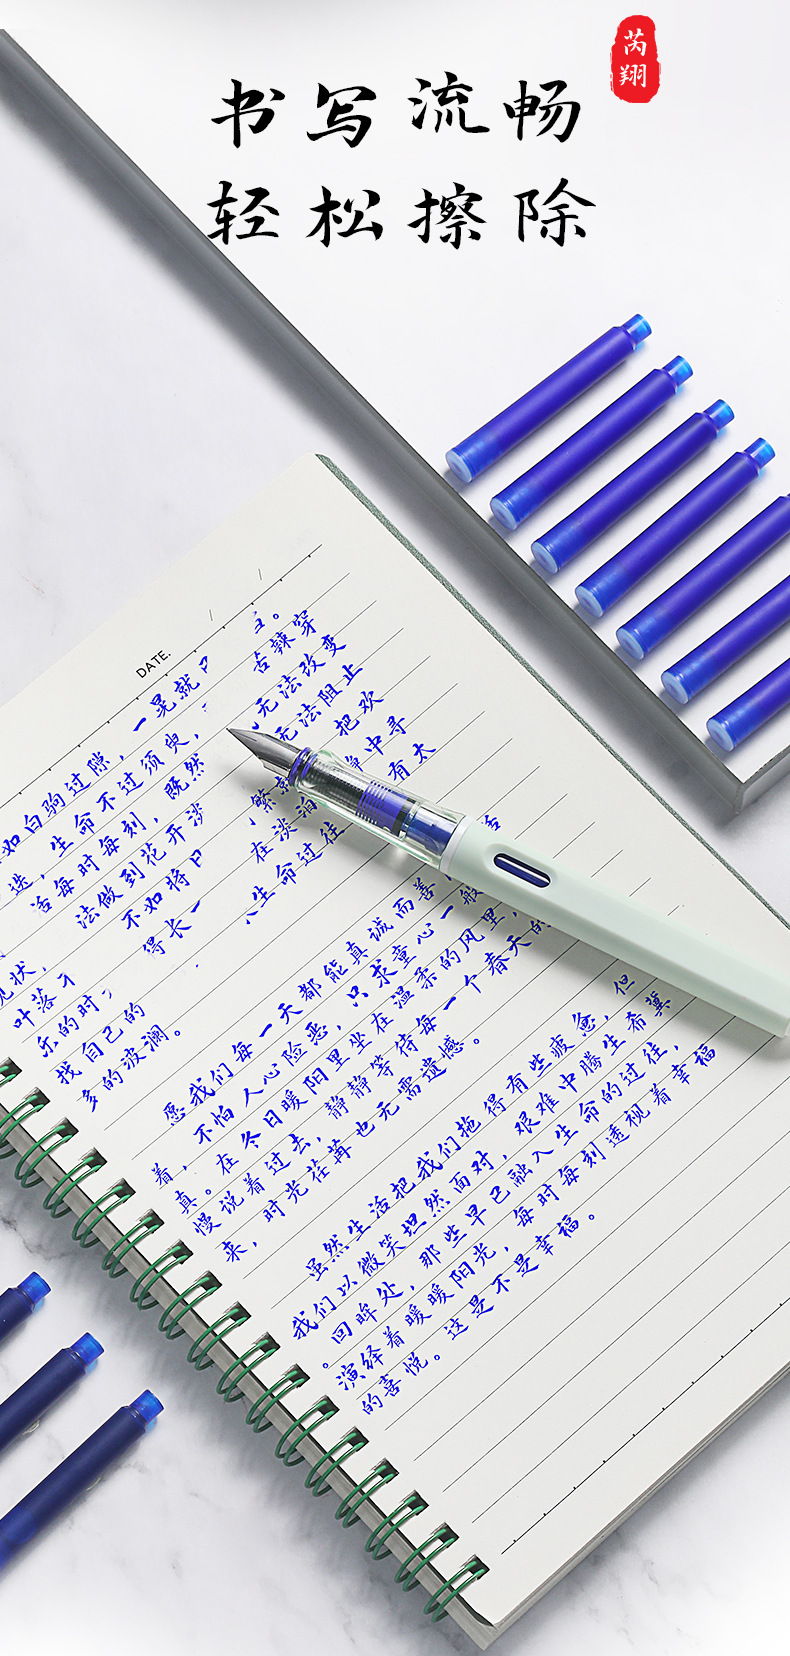 芮翔
书写流畅
轻松擦除
DATE.
如白驹过隙，一晃就
迭，生命不过须臾， 苦辣穿
活每时每刻，既然 无法改变
现状， 法做到花开淡 无法阻止
叶落 不如将 把欢
乐的时 得长一 中寻
找自己的 在淡泊 有太
多的波澜。 生命过往
愿我们每一天都能真诚而善 活
着，不怕人心险恶，只求童心一般
真。在冬日暖阳里坐在温柔的风里，
慢说着过去，静静等待每一个春天的
来，时光荏苒也无需遗憾。
虽然生活把我们拖得有些疲惫，但
我们以微笑坦然面对，艰难中腾生希冀
。回眸处，那些早已融入生命的过往，
演绎着暖暖阳光，每时每刻透视着幸福
的喜悦。这是不是幸福。